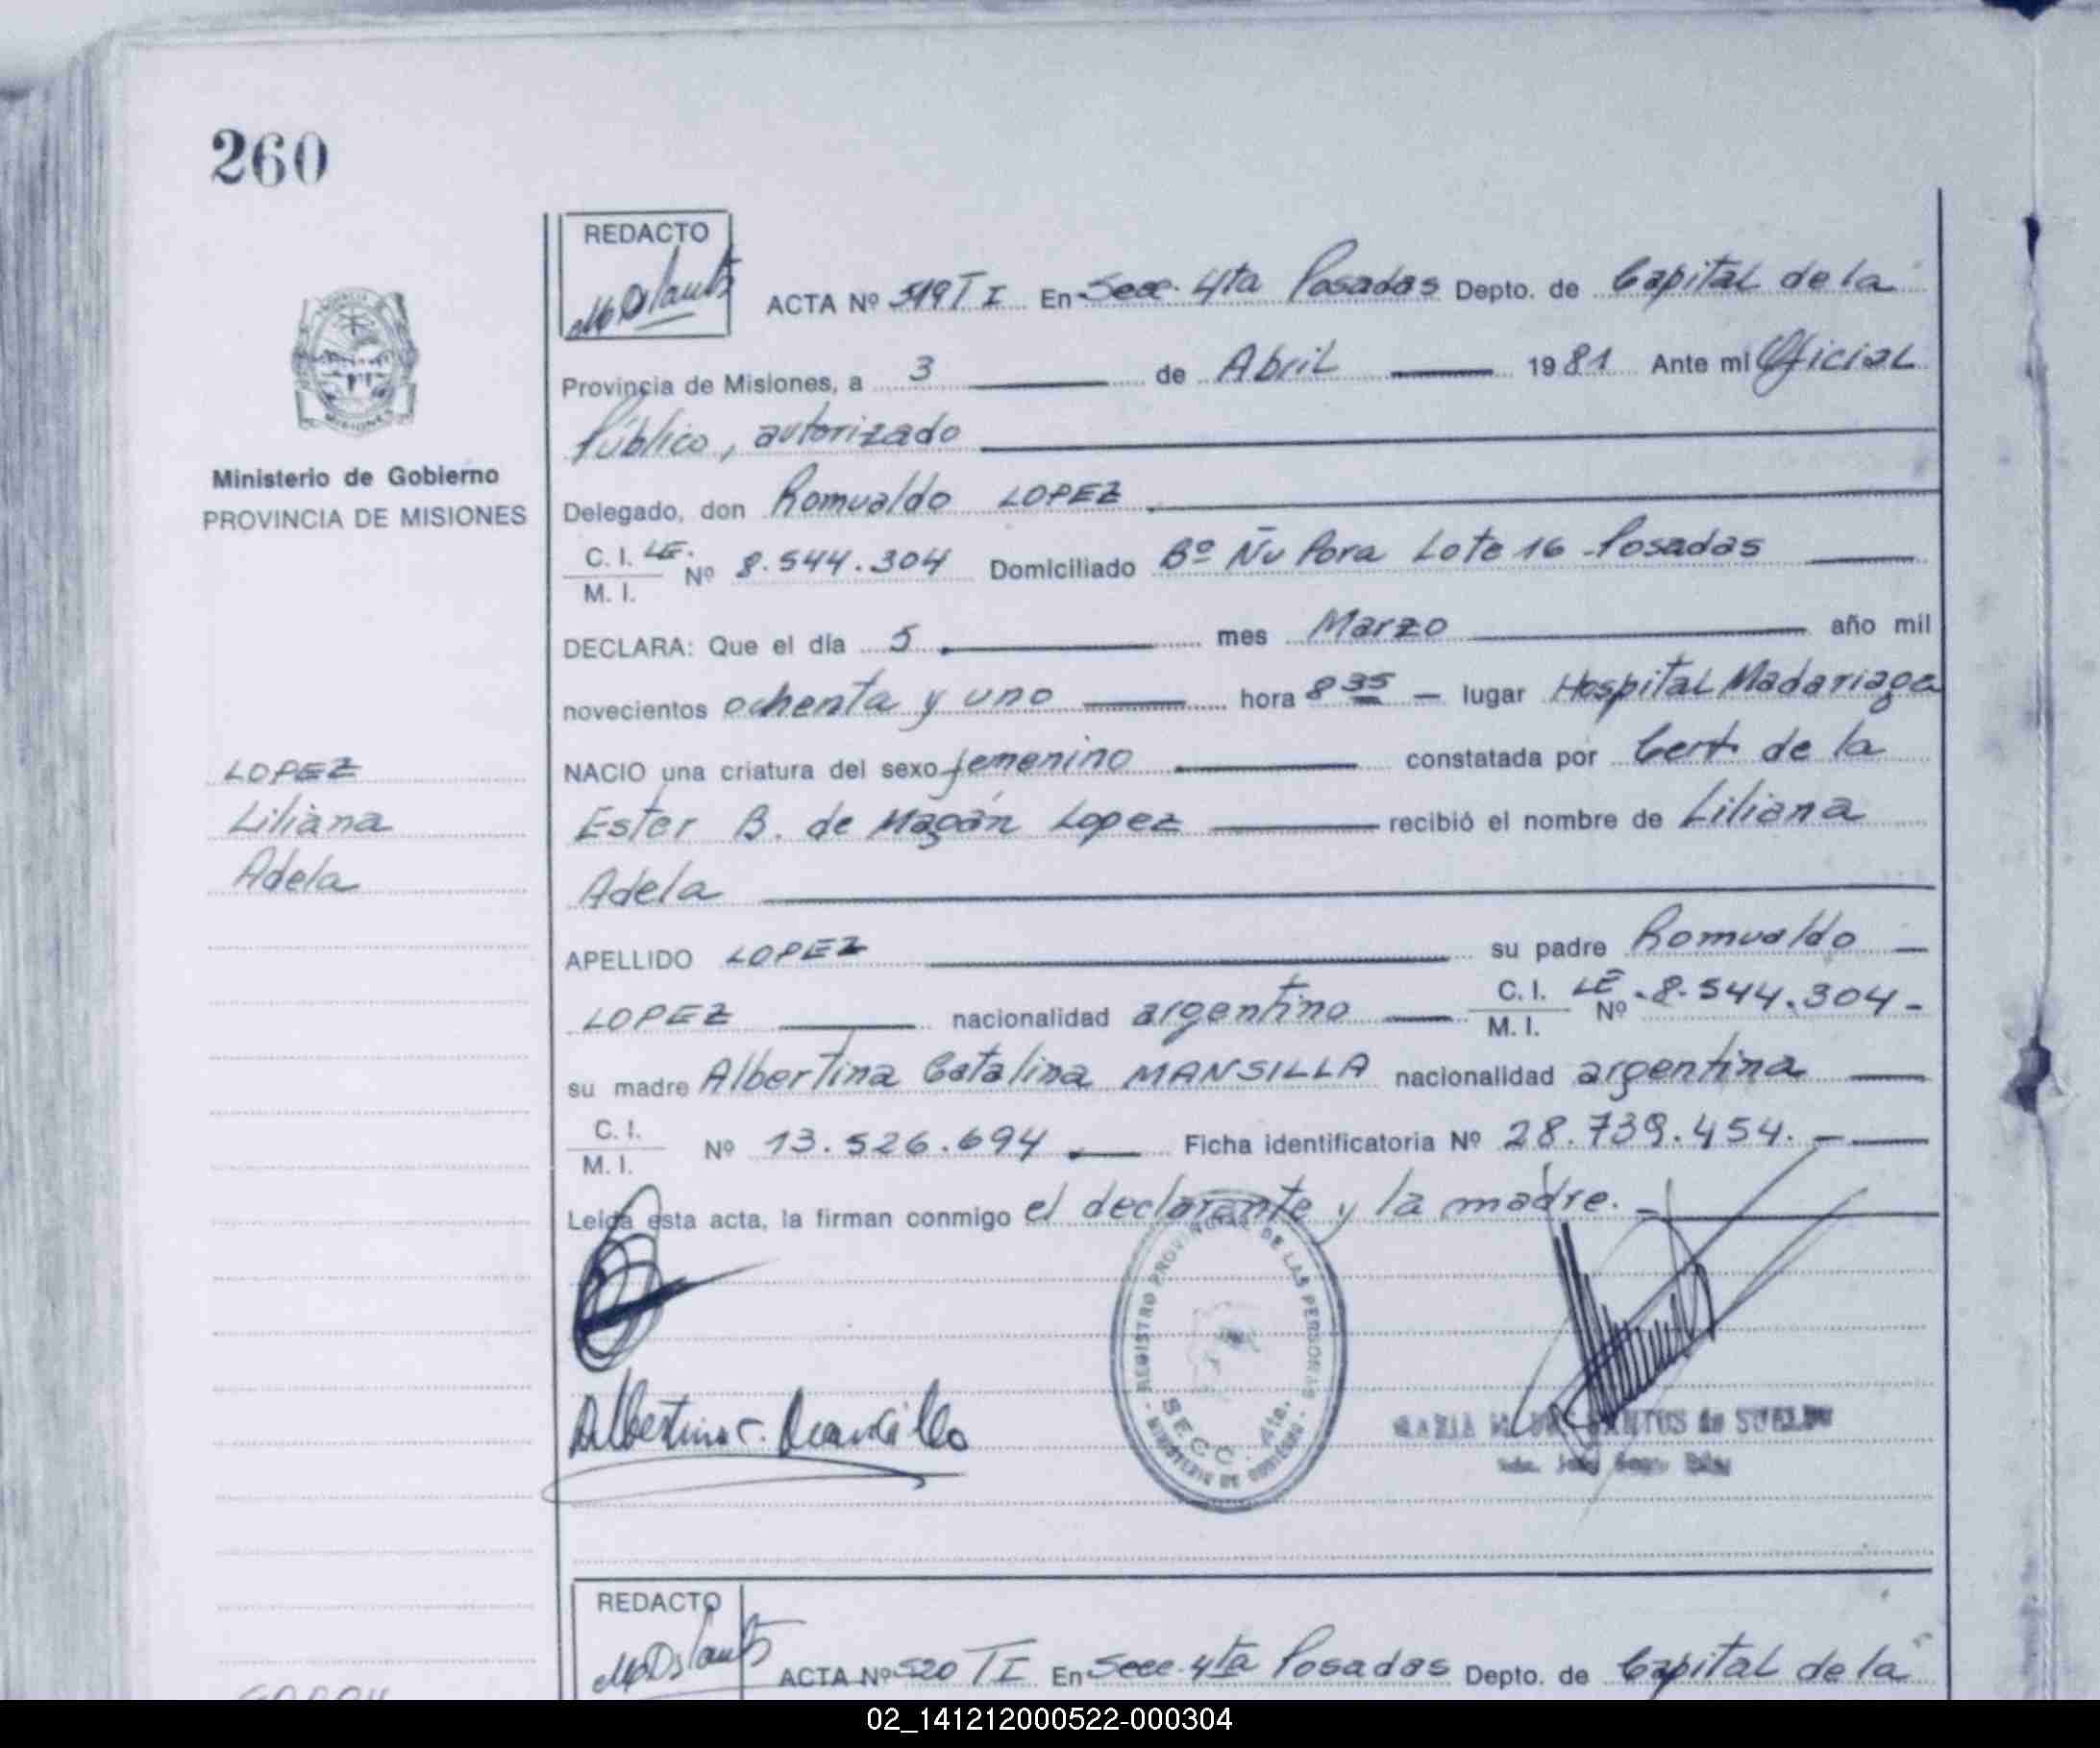 260
REDACTO
ACTA Nº 519 T I En Secc. 4ta Posadas Depto. de Capital de la
Provincia de Misiones, a 3 de Abril 1981 Ante mi Oficial
Público, autorizado
Ministerio de Gobierno
PROVINCIA DE MISIONES
Delegado, don Romualdo LOPEZ
C. I. LE. Nº 8.544.304 Domiciliado Bº Ñu Pora Lote 16 - Posadas
M. I.
DECLARA: Que el día 5 mes Marzo año mil
novecientos ochenta y uno hora 8 35 - lugar Hospital Madariaga
LOPEZ
Liliana
Adela
NACIO una criatura del sexo femenino constatada por Cert. de la
Ester B. de Magán Lopez recibió el nombre de Liliana
Adela
APELLIDO LOPEZ su padre Romualdo
LOPEZ nacionalidad argentino C. I. LE Nº 8.544.304 -
M. I.
su madre Albertina Catalina MANSILLA nacionalidad argentina
C. I. Nº 13.526.694 Ficha identificatoria Nº 28.739.454. -
M. I.
Leida esta acta, la firman conmigo el declarante y la madre. -
REGISTRO PROVINCIAL DE LAS PERSONAS
SECC. 4ta.
- MINISTERIO DE GOBIERNO -
Albertina C. Mansilla
MARIA de SUELDO
REDACTO
ACTA Nº 520 T I En Secc. 4ta Posadas Depto. de Capital de la
02_141212000522-000304